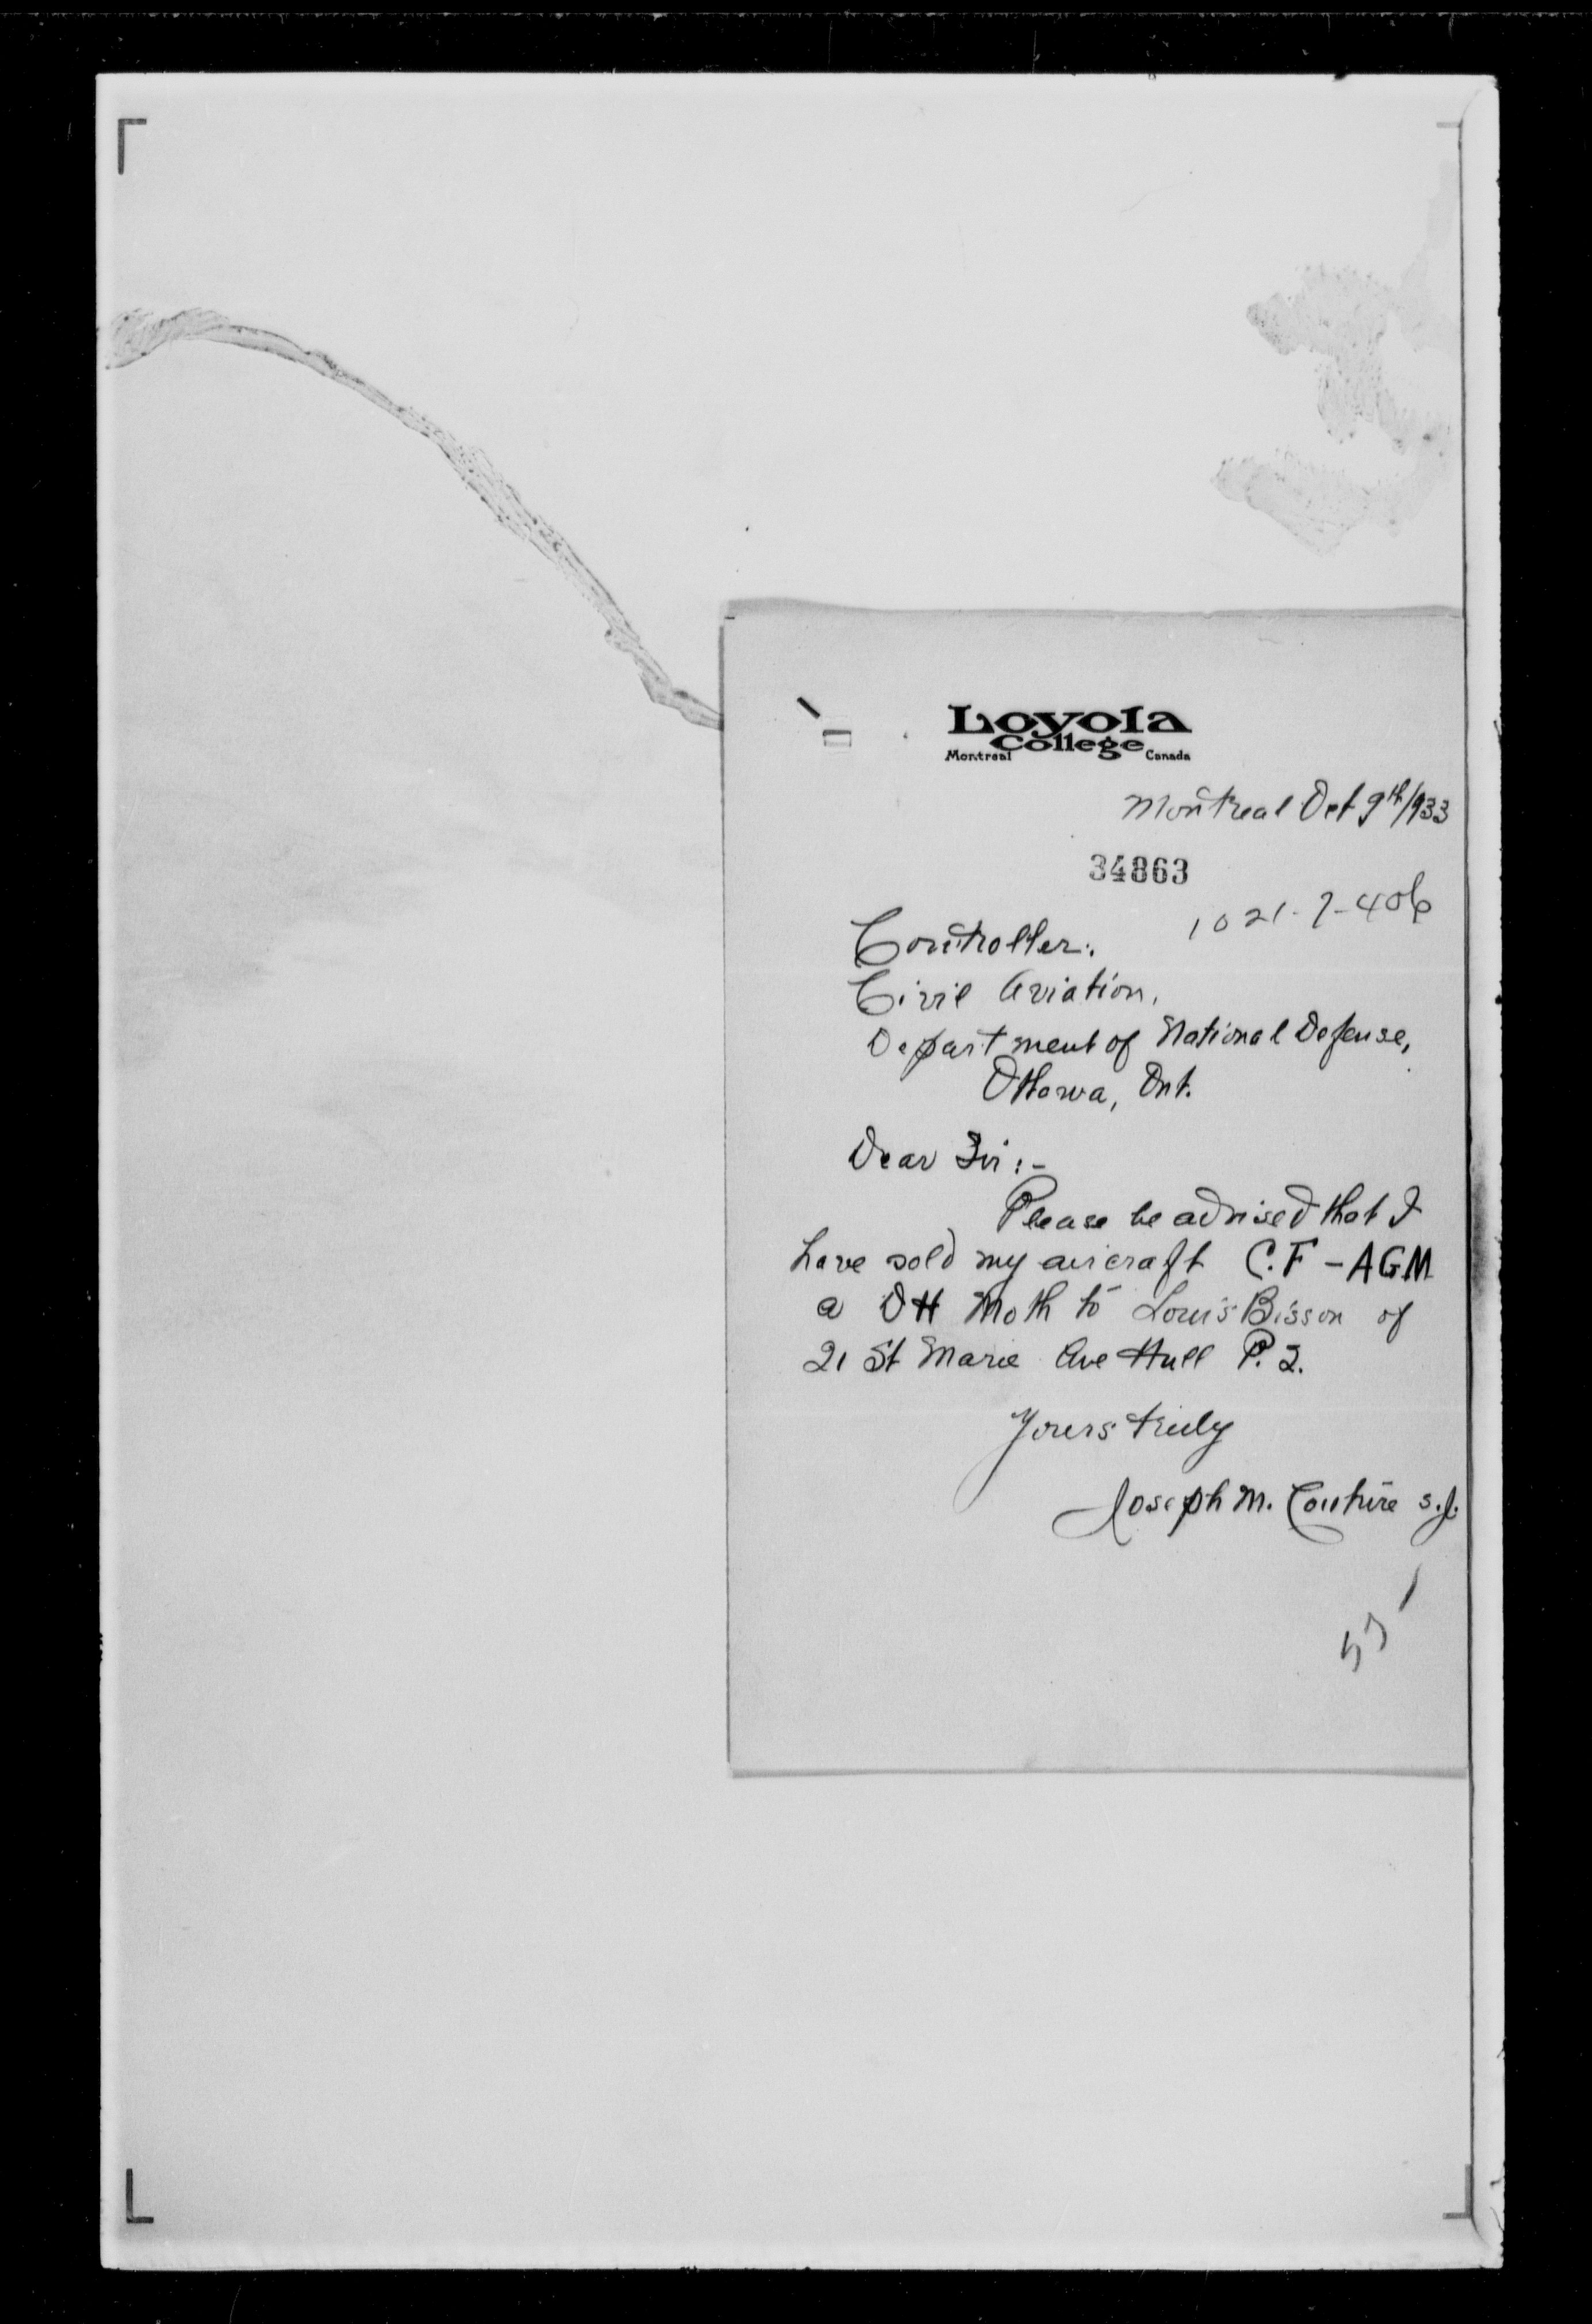 Loyola
College
Montreal Canada
Montreal Oct 9th/933
34863
1021-7-406
Controller.
Civil Aviation,
Department of National Defense,
Ottawa, Ont.
Dear Sir:-
Please be advised that I
have sold my aircraft C.F-AGM
a DH Moth to Louis Bisson of
21 St Marie Ave Hull P.Q.
Yours truly
Joseph M. Couture s.j.